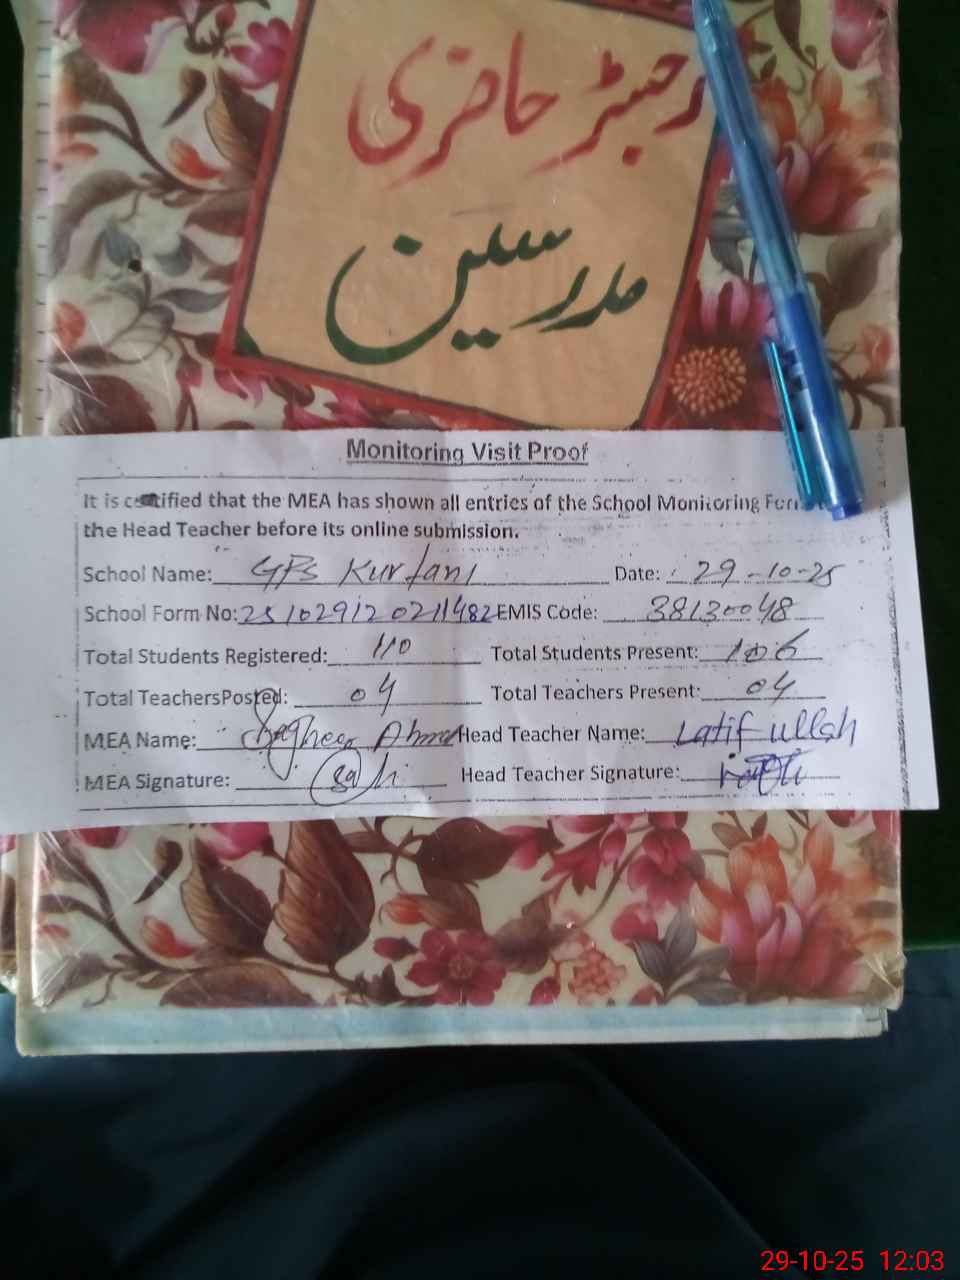 رجسٹر حاضری
مدرسین
Monitoring Visit Proof
It is certified that the MEA has shown all entries of the School Monitoring Form to
the Head Teacher before its online submission.
School Name: GPS Kurfani Date: 29-10-25
School Form No: 251029120211482 EMIS Code: 38130048
Total Students Registered: 110 Total Students Present: 106
Total TeachersPosted: 04 Total Teachers Present: 04
MEA Name: Sagheer Ahmad Head Teacher Name: Latif ullah
MEA Signature: Head Teacher Signature:
29-10-25 12:03